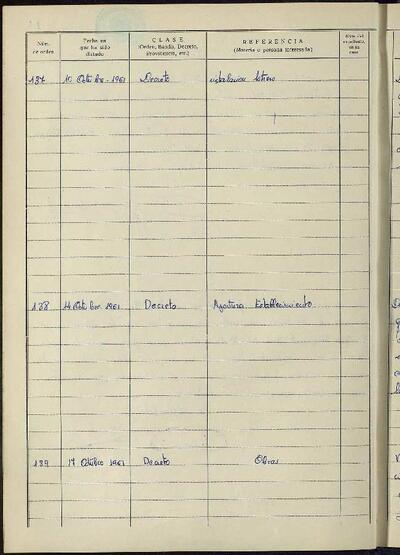 Núm. de orden
Fecha en que ha sido dictado
CLASE
(Orden, Bando, Decreto, Providencia, etc.)
REFERENCIA
(Materia o persona interesada)
137 10 Octubre - 1961 Decreto
138 14 Octubre 1961 Decreto Apertura Establecimiento
139 17 Octubre 1961 Decreto Obras